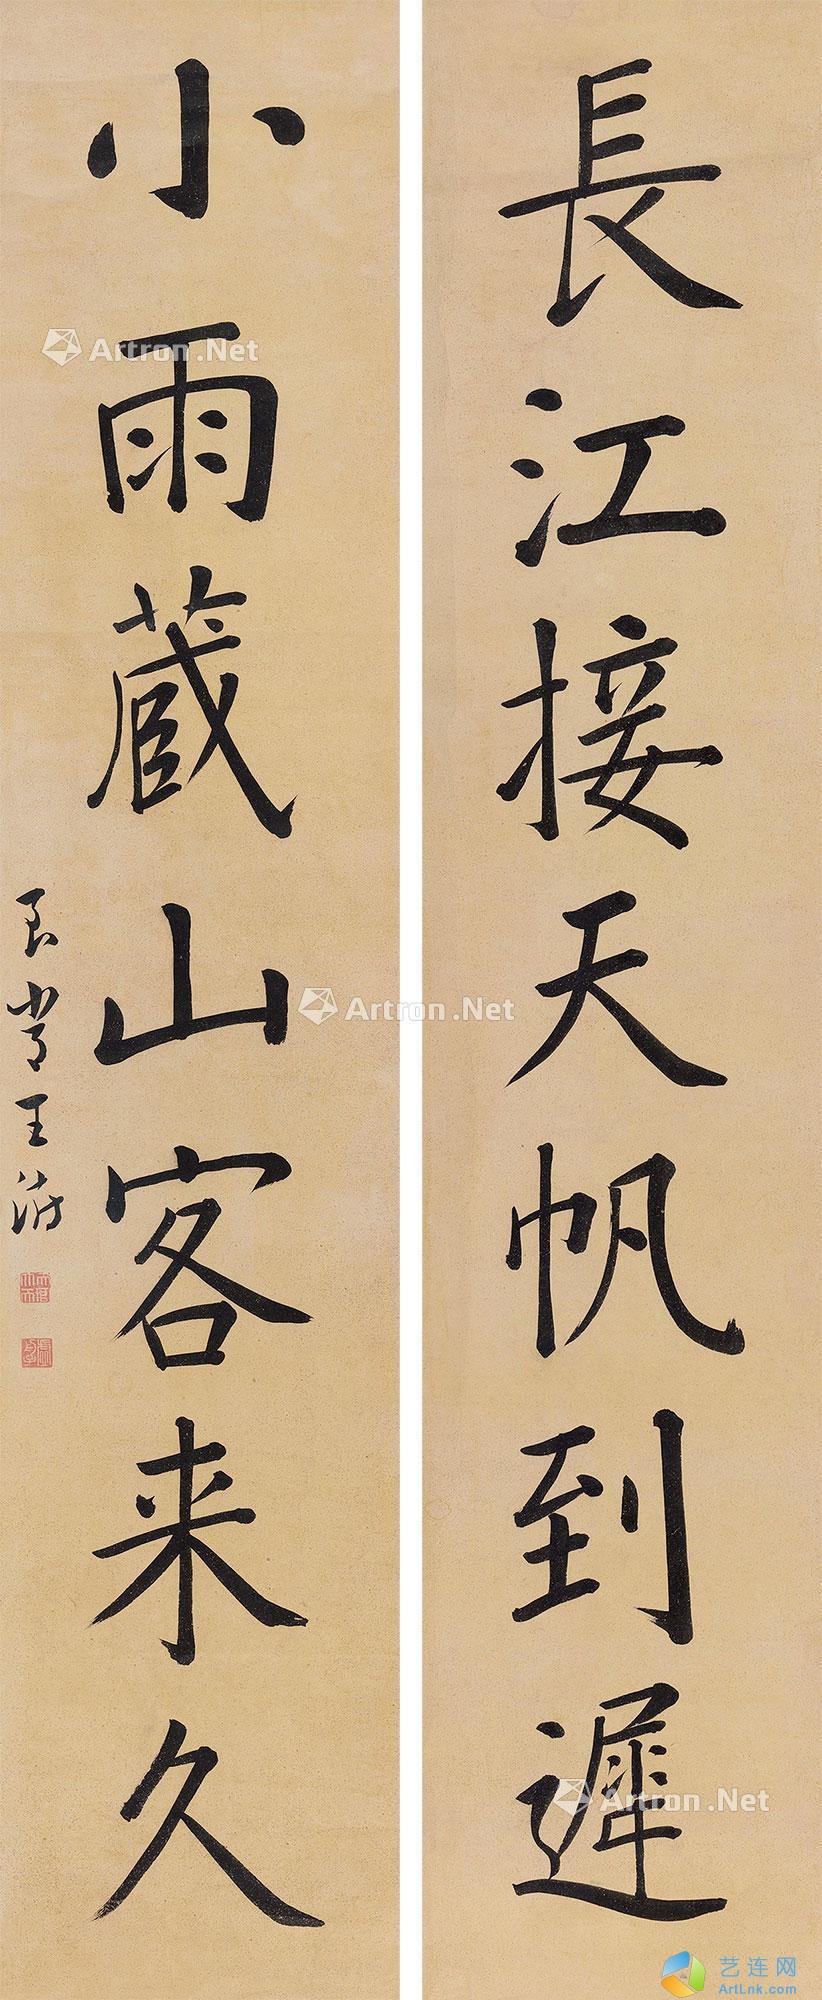 長江接天帆到遲
小雨蔵山客来久
艮甫王
Artron.Net
Artron.Net
Artron.Net
艺连网
ArtLnk.com